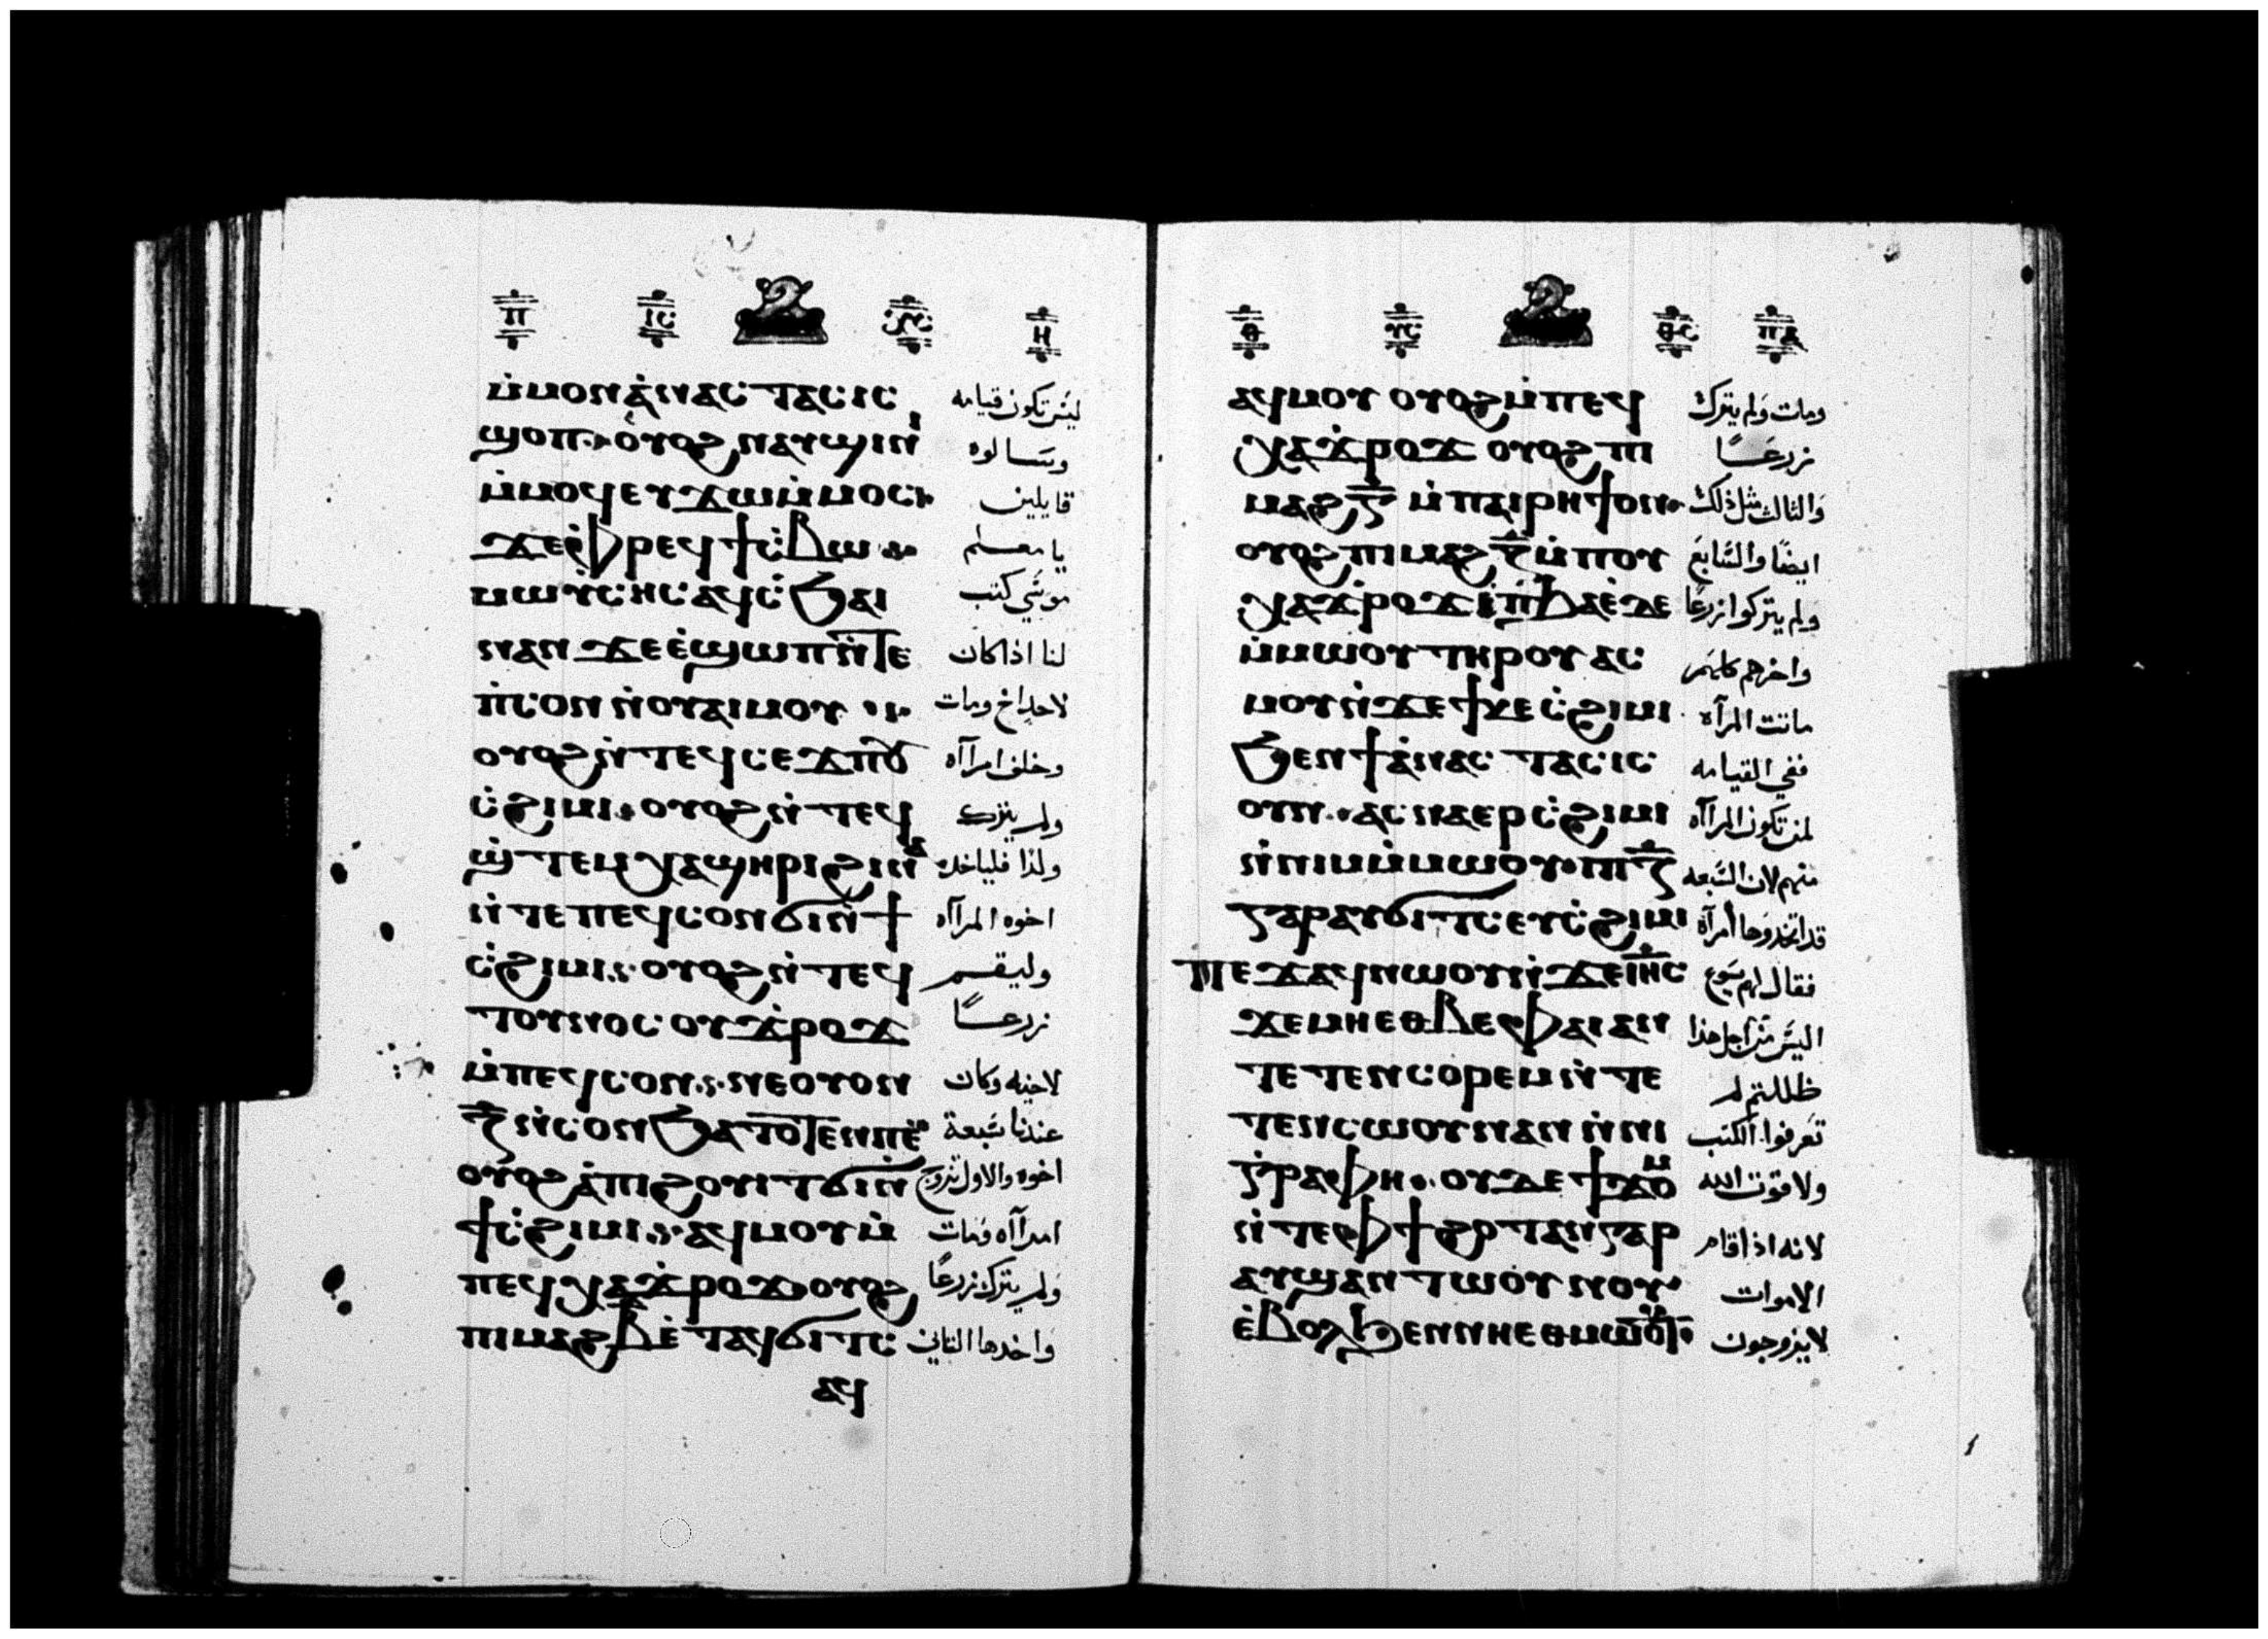 ⲡ ⲓⲥ ⲏ
ⲙ̇ⲙⲟⲛ ⲁ̇ⲛⲁⲥⲧⲁⲥⲓⲥ ليس تكون قيامه
ϣⲟⲡ ⲟ̇ⲩⲟϩ ⲛⲁⲩϣⲓⲛⲓ وتسالوه
ⲙ̇ⲙⲟϥ ⲉⲩϫⲱ ⲙ̇ⲙⲟⲥ قايلين
ϫⲉ ⲫⲣⲉϥϯⲥ̇ⲃⲱ يا معلم
ⲙⲱⲩ̇ⲥⲏⲥ ⲁϥⲥ̇ϧⲁⲓ موسي كتب
ⲛⲁⲛ ϫⲉ ⲉ̇ϣⲱⲡ ⲛ̇ⲧⲉ لنا اذا كان
ⲡ̇ⲥⲟⲛ ⲛ̇ⲟⲩⲁⲓ ⲙⲟⲩ لاحد اخ ومات
ⲟⲩⲟϩ ⲛ̇ⲧⲉϥⲥⲉϫⲡ ⲟⲩ وخلف امرآاه
ⲥ̇ϩⲓⲙⲓ ⲟⲩⲟϩ ⲛ̇ⲧⲉϥ ولم يترك
ϣ̇ⲧⲉⲙⲭⲁ ϣⲏⲣⲓ ϩⲓⲛⲁ ولدا فلياخد
ⲛ̇ⲧⲉ ⲡⲉϥⲥⲟⲛ ϭⲓ ⲛ̇ϯ اخوه المرآاه
ⲥ̇ϩⲓⲙⲓ ⲟⲩⲟϩ ⲛ̇ⲧⲉϥ وليقم
ⲧⲟⲩⲛⲟⲥ ⲟⲩϫ̇ⲣⲟϫ زرعًا
ⲙ̇ⲡⲉϥⲥⲟⲛ ⲛⲉ ⲟⲩⲟⲛ لاخيه وكان
ⲍ̅ ⲛ̇ⲥⲟⲛ ϧⲁⲧⲟⲧⲉⲛ ⲡⲉ عندنا سبعة
ⲟⲩⲟϩ ⲁ̇ ⲡⲓϩⲟⲩⲓⲧ ϭⲓ ⲛ̇ اخوه والاول تزوج
ϯⲥ̇ϩⲓⲙⲓ ⲁϥⲙⲟⲩ ⲙ̇ امرآاه ومات
ⲡⲉϥⲭⲁ ϫ̇ⲣⲟϫ ⲟⲩⲟϩ ولم يترك زرعًا
ⲡⲓⲙⲁϩ ⲃ ⲉ̇ⲧⲁϥϭⲓⲧⲥ واخدها التاني
ⲁϥ
ⲑ ⲡⲁ
ⲁϥⲙⲟⲩ ⲟⲩⲟϩ ⲙ̇ⲡⲉϥ ومات ولم يترك
ⲭⲁ ϫ̇ⲣⲟϫ ⲟⲩⲟϩ ⲡⲓ زرعًا
ⲙⲁϩ ⲅ̅ ⲙ̇ⲡⲁⲓⲣⲏϯ ⲟⲛ والثالث مثل ذلك
ⲟⲩⲟϩ ⲡⲓⲙⲁϩ ⲍ̅ ⲙ̇ⲡⲟⲩ ايضًا والسابع
ⲭⲁ ϫ̇ⲣⲟϫ ⲉ̇ⲡ̇ϧⲁⲉ̇ ⲇⲉ ولم يتركوا زرعًا
ⲙ̇ⲙⲱⲟⲩ ⲧⲏⲣⲟⲩ ⲁⲥ واخرهم كلهم
ⲙⲟⲩ ⲛ̇ϫⲉ ϯⲕⲉⲥ̇ϩⲓⲙⲓ ماتت المرآه
ϧⲉⲛ ϯⲁ̇ⲛⲁⲥⲧⲁⲥⲓⲥ ففي القيامه
ⲟⲩⲛ ⲁⲥⲛⲁⲉⲣ ⲥ̇ϩⲓⲙⲓ لمن تكون المرآاه
ⲛ̇ⲛⲓⲙ ⲙ̇ⲙⲱⲟⲩ ⲡⲓ ⲍ̅ منهم لان السبعه
ⲅⲁⲣ ⲁⲩϭⲓⲧⲥ ⲉⲩⲥ̇ϩⲓⲙⲓ قد اتخدوها أمرآة
ⲡⲉϫⲁϥ ⲛⲱⲟⲩ ⲛ̇ϫⲉ ⲓⲏⲥ فقال لهم يسوع
ϫⲉ ⲙⲏ ⲉⲑⲃⲉ ⲫⲁⲓ ⲁⲛ اليس من آجل هذا
ⲧⲉⲧⲉⲛⲥⲟⲣⲉⲙ ⲛ̇ⲧⲉ ظللتم لم
ⲧⲉⲛⲥⲱⲟⲩⲛ ⲁⲛ ⲛ̇ⲛⲓ تعرفوا الكتب
ⲅ̇ⲣⲁⲫⲏ ⲟⲩⲇⲉ ϯϫⲟⲙ ولا قوت الله
ⲛ̇ⲧⲉ ⲫϯ ϩⲟⲧⲁⲛ ⲅⲁⲣ لانه اذا قام
ⲁⲩϣⲁⲛⲧⲱⲟⲩⲛⲟⲩ الاموات
ⲉ̇ⲃⲟⲗ ϧⲉⲛ ⲛⲏⲉⲑⲙⲱⲟⲩⲧ لا يزوجون